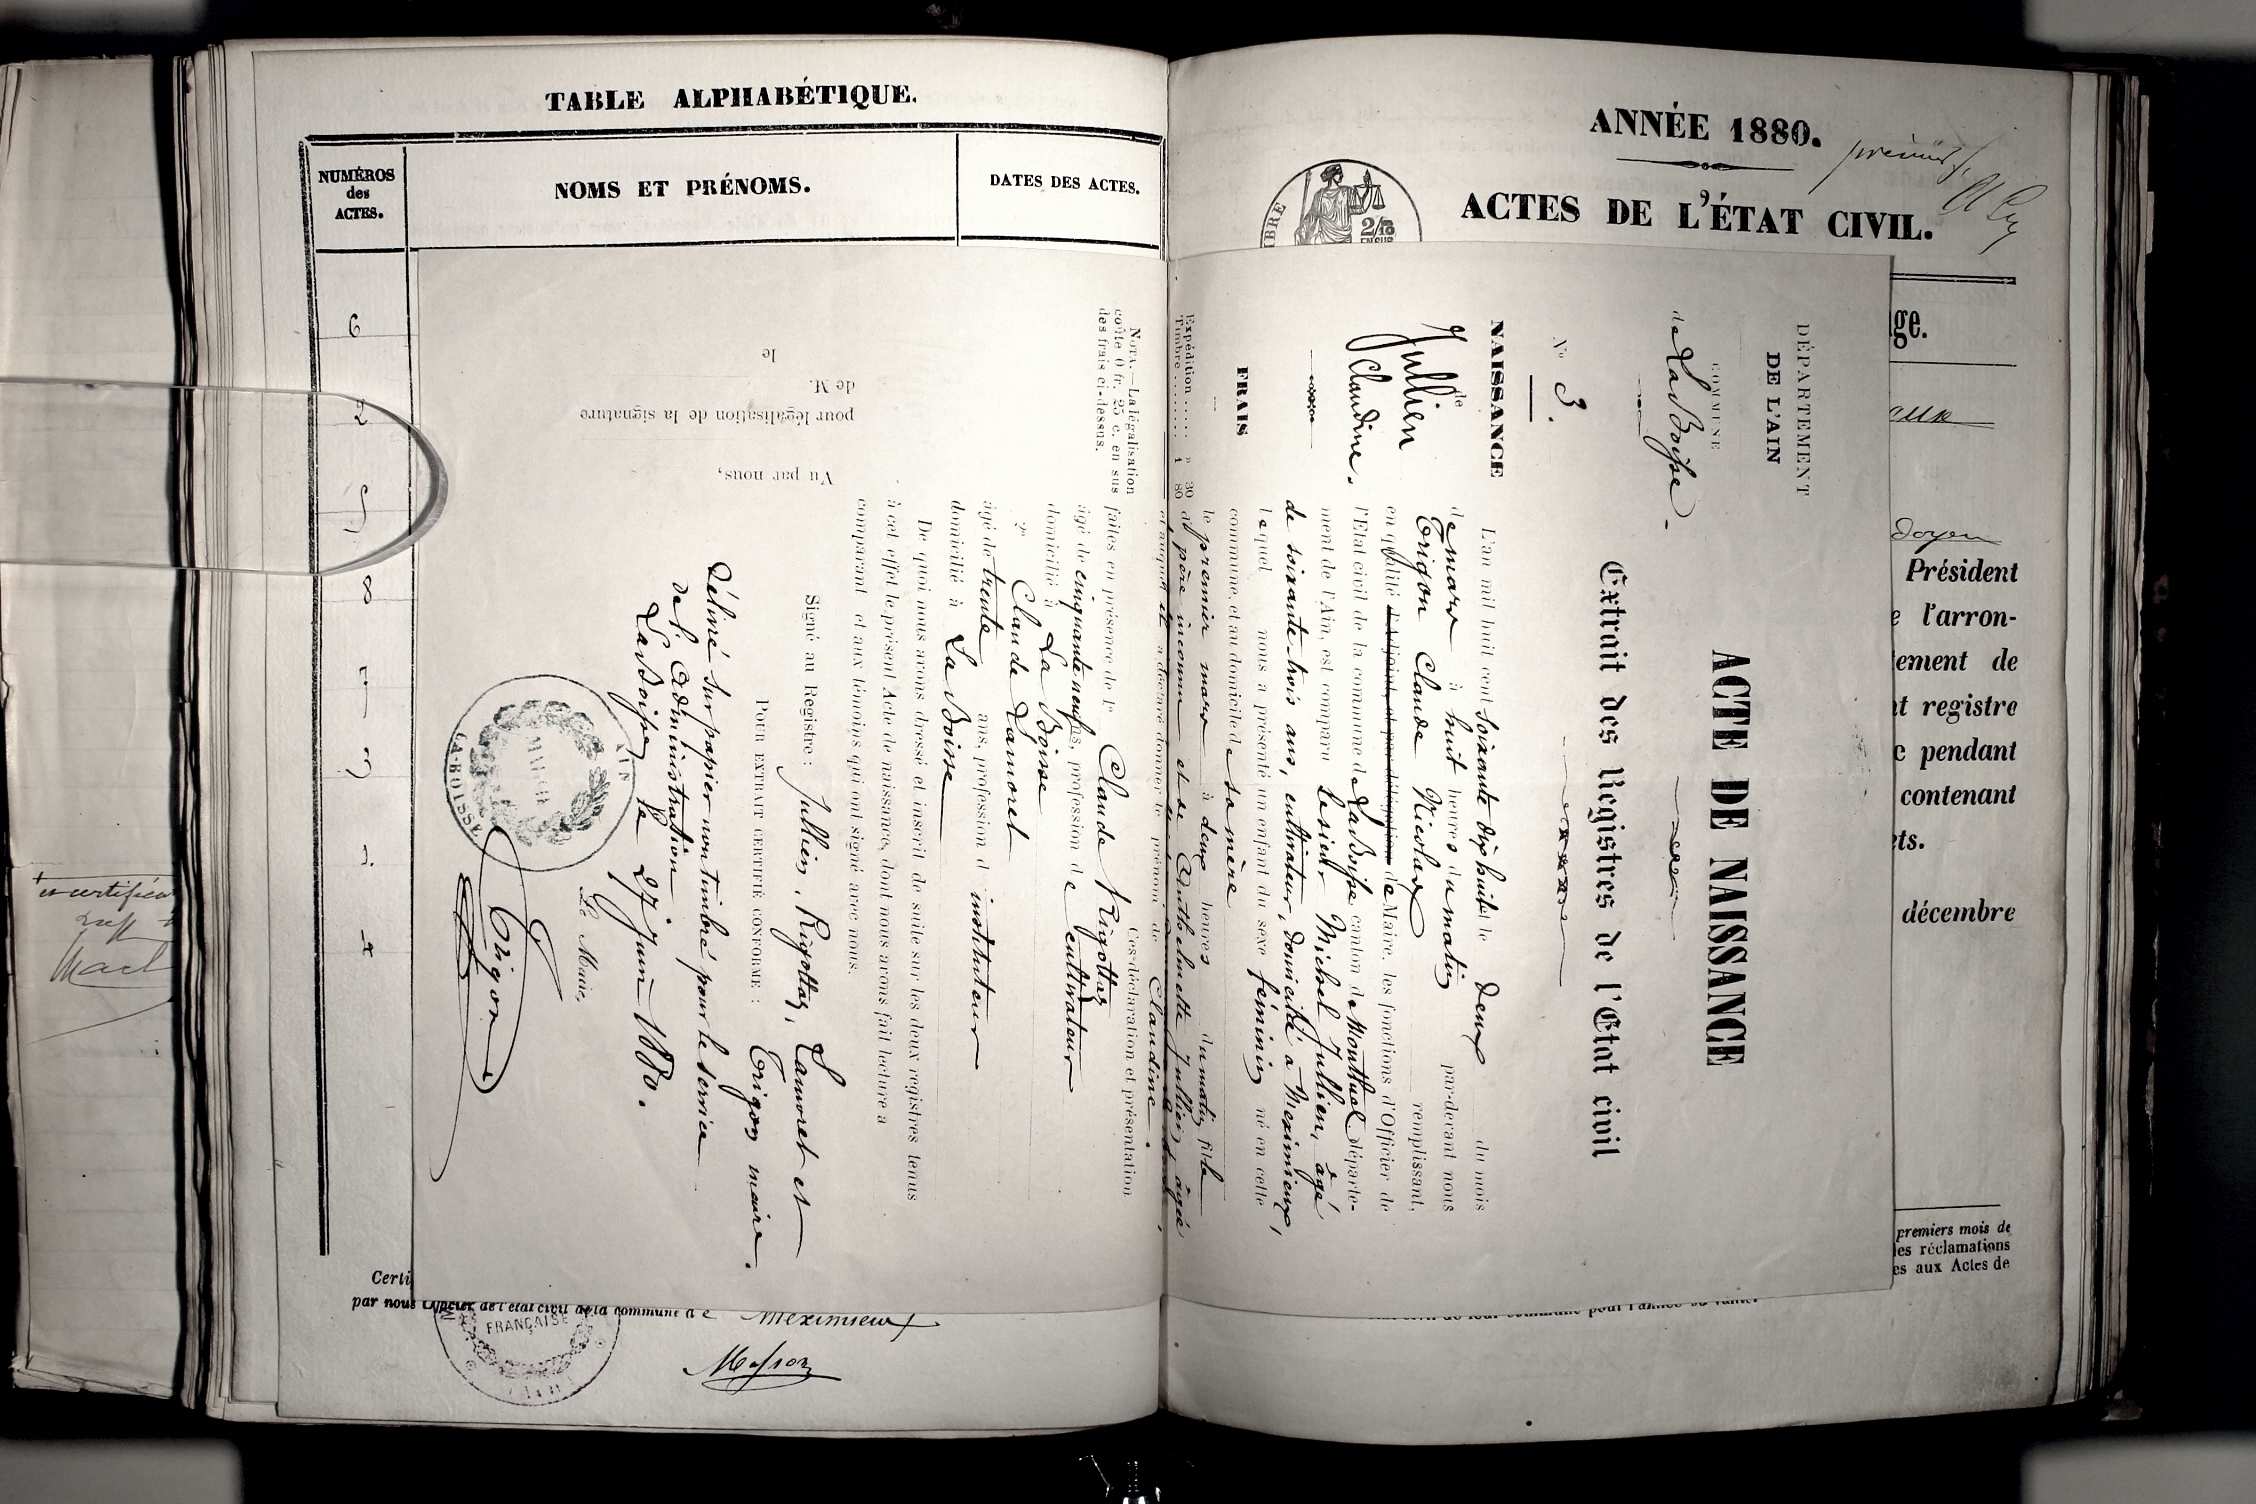 TABLE ALPHABÉTIQUE.
NUMÉROS
des
ACTES.
NOMS ET PRÉNOMS.
DATES DES ACTES.
6
2
5
8
7
3
1
4
Certi
par nous Officier de l'état civil de la commune de Meximieux
Masson
FRANÇAISE
ANNÉE 1880.
premier
ACTES DE L'ÉTAT CIVIL.
2/10
EN SUS
age.
Doyen
Président
e l'arron-
tement de
nt registre
c pendant
contenant
ets.
décembre
premiers mois de
les réclamations
es aux Actes de
DÉPARTEMENT
DE L'AIN
COMMUNE
de La Boisse.
N° 3.
NAISSANCE
de
Jullien
Claudine.
FRAIS
Expédition . . . . . » 30
Timbre . . . . . . . 1 80
NOTA. — La légalisation
coûte 0 fr. 25 c. en sus
des frais ci-dessus.
ACTE DE NAISSANCE
Extrait des Registres de l'Etat civil
L'an mil huit cent soixante dix huit le deux du mois
de mars à huit heures du matin par-devant nous
Trigon Claude Nicolas remplissant,
en qualité d'Adjoint, et par délégation de Maire, les fonctions d'Officier de
l'Etat civil de la commune de La Boisse canton de Montluel départe-
ment de l'Ain, est comparu le sieur Michel Jullien, âgé
de soixante trois ans, cultivateur, domicilié à Meximieux,
lequel nous a présenté un enfant du sexe féminin né en cette
commune, et au domicile de sa mère
le premier mars à deux heures du matin fille
de père inconnu et de Anthelmette Jullien âgée
et auquel il a déclaré donner le prénom de Claudine.
Ces déclaration et présentation
faites en présence de 1° Claude Rigottaz
âgé de cinquante neuf ans, profession de cultivateur
domicilié à La Boisse
2° Claude Lamoret
âgé de trente ans, profession d instituteur
domicilié à La Boisse
De quoi nous avons dressé et inscrit de suite sur les deux registres tenus
à cet effet le présent Acte de naissance, dont nous avons fait lecture a
comparant et aux témoins qui ont signé avec nous.
Signé au Registre : Jullien, Rigottaz, Lamoret et
Trigon maire.
POUR EXTRAIT CERTIFIÉ CONFORME :
Délivré sur papier non timbré pour le service
de l'Administration
La Boisse le 27 juin 1880.
Le Maire,
Trigon
MAIRIE
LA BOISSE
AIN
Vu par nous,
pour légalisation de la signature
de M.
le